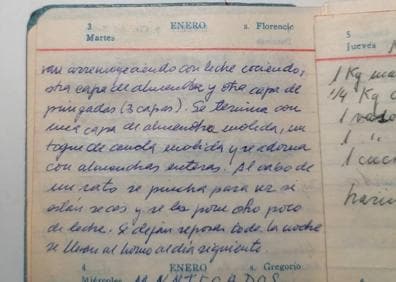 3 ENERO s. Florencio
Martes
van arremojeciendo con leche cociendo;
otra capa de almendra y otra capa de
pringadas (3 capas). Se termina con
una capa de almendra molida, un
toque de canela molida y se adorna
con almendras enteras. Al cabo de
un rato se pincha para ver si
están secas y se les pone otro poco
de leche. Se dejan reposar toda la noche
se llevan al horno al día siguiente.
4 ENERO s. Gregorio
Miércoles
5
Jueves
1 Kg
1/4 Kg
1 vaso
1 "
1